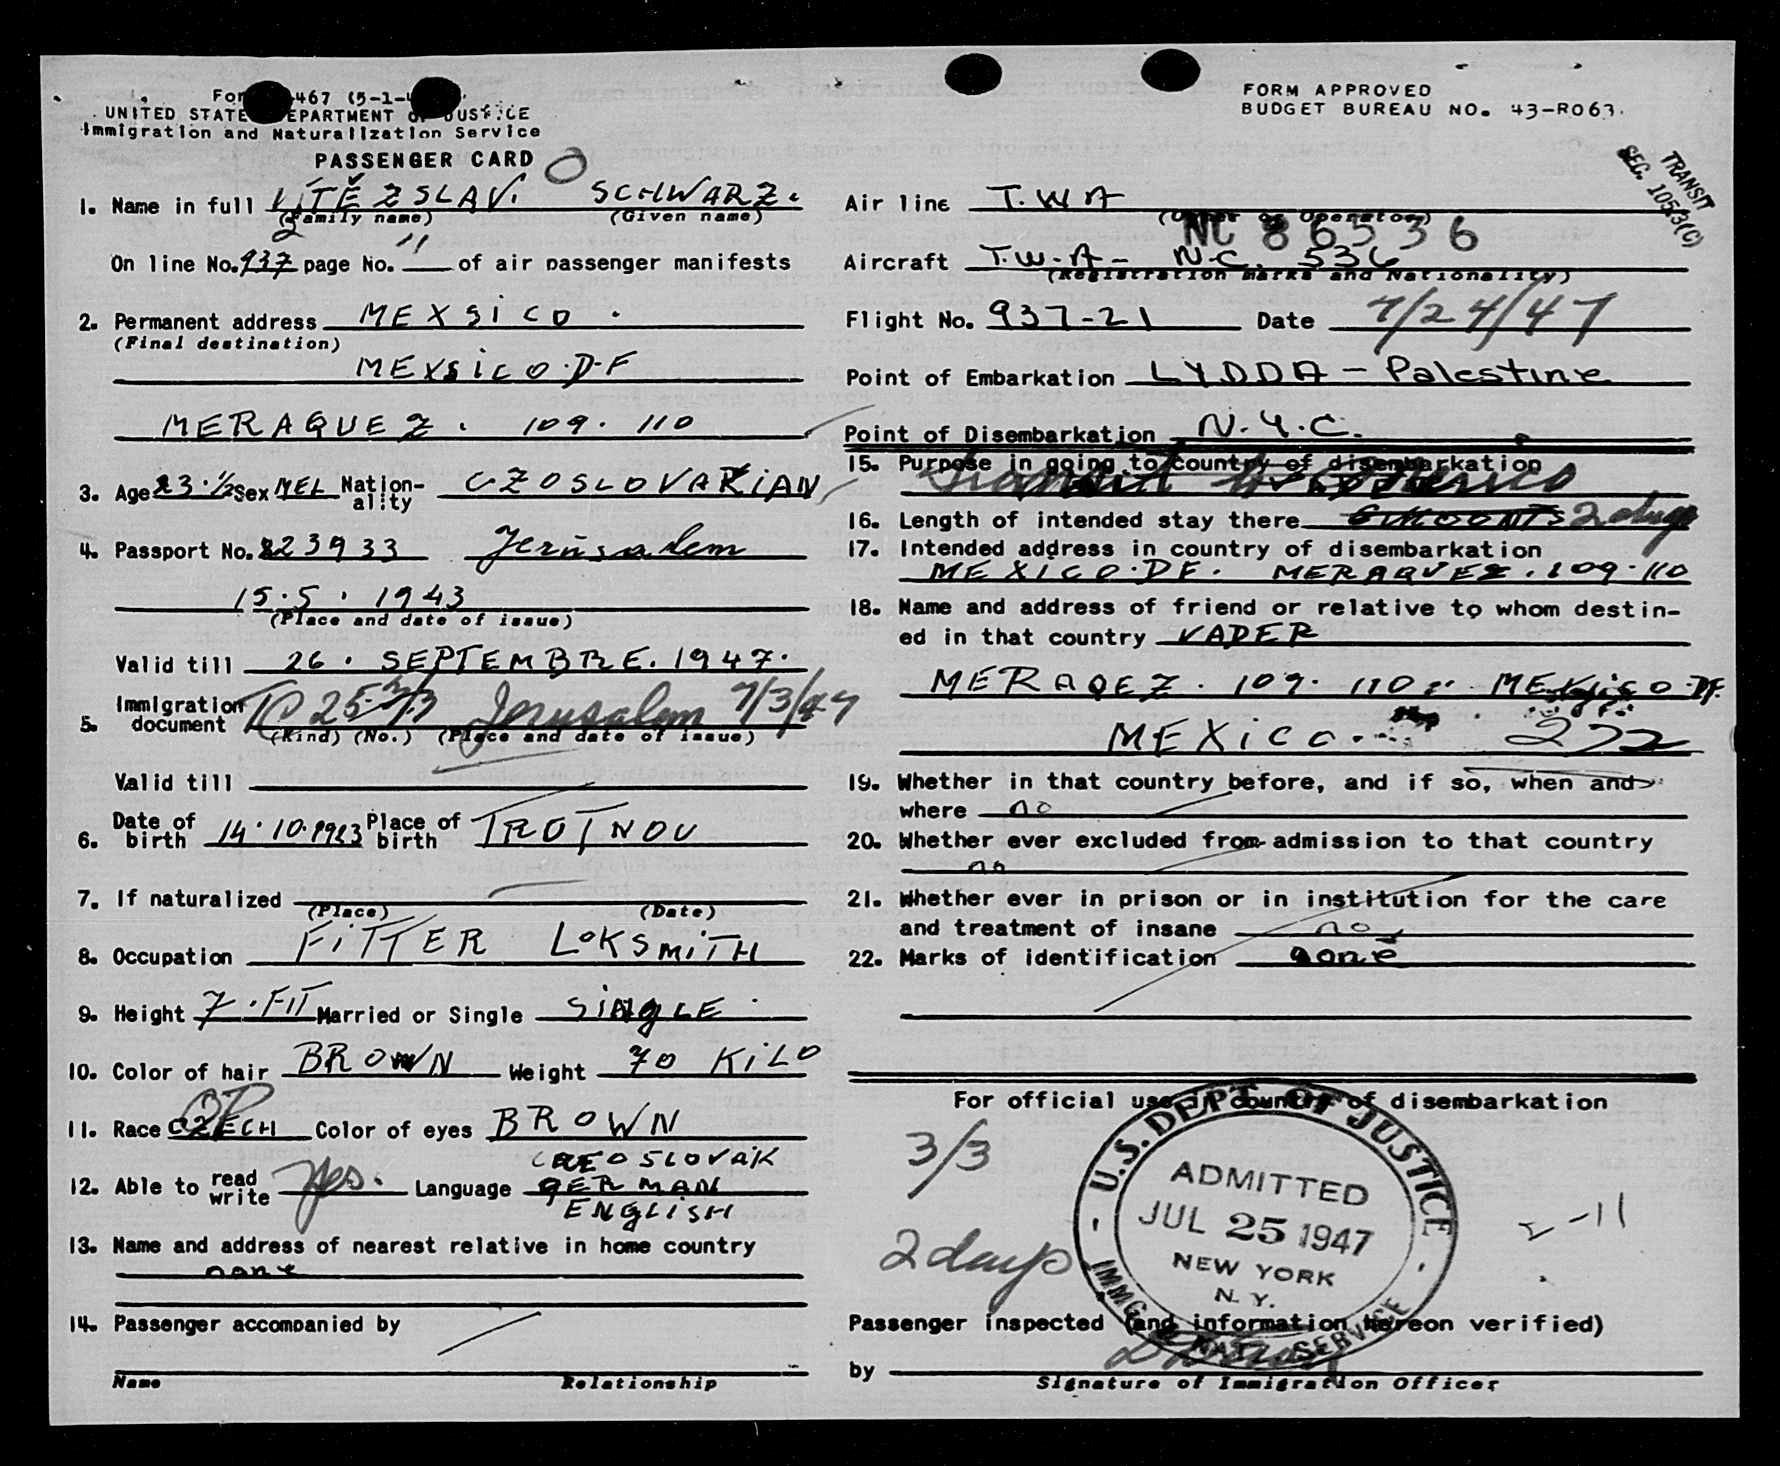 FORM APPROVED
BUDGET BUREAU NO. 43-R063.
UNITED STATE EPARTMENT
Immigration and Naturalization Service
PASSENGER CARD
TRANSIT
SEC. 105.3(C)
1. Name in full VITĚZSLAV. SCHWARZ.
(Family name) (Given name)
On line No. 937 page No. 11 of air passenger manifests
2. Permanent address MEXSICO.
(Final destination)
MEXSICO.D.F
MERAQUEZ. 109. 110
3. Age 23.1/2 Sex MEL Nationality CZOSLOVAKIAN
4. Passport No. 223933 Jerusalem
15.5.1943
(Place and date of issue)
Valid till 26. SEPTEMBRE. 1947.
5. Immigration document Jerusalem 7/3/47
(Kind) (No.) (Place and date of issue)
Valid till
6. Date of birth 14.10.1923 Place of birth TRUTNOV
7. If naturalized
(Place) (Date)
8. Occupation FITTER LOKSMITH
9. Height 7.FIT Married or Single SINGLE.
10. Color of hair BROWN Weight 70 KILO
11. Race CZECH Color of eyes BROWN
12. Able to read write Yes. Language GERMAN
ENGLISH
13. Name and address of nearest relative in home country
none
14. Passenger accompanied by
Name Relationship
Air line T.W.A
(Owner or Operator)
NC 86536
Aircraft T.W.A- N.C. 536
(Registration marks and Nationality)
Flight No. 937-21 Date 7/24/47
Point of Embarkation LYDDA - Palestine
Point of Disembarkation N.Y.C.
15. Purpose in going to country of disembarkation
Transit to Mexico
16. Length of intended stay there 2 days
17. Intended address in country of disembarkation
MEXICO.DF. MERAQUEZ. 109.110
18. Name and address of friend or relative to whom destin-
ed in that country VADER
MERAQEZ. 109. 110. MEXICO DF.
MEXICO.
19. Whether in that country before, and if so, when and
where no
20. Whether ever excluded from admission to that country
no
21. Whether ever in prison or in institution for the care
and treatment of insane no
22. Marks of identification none
For official use in country of disembarkation
3/3
2 days
U.S. DEPT. OF JUSTICE
ADMITTED
JUL 25 1947
NEW YORK
N.Y.
IMMG. & NAT. SERVICE
Passenger inspected (and information hereon verified)
by
Signature of Immigration Officer